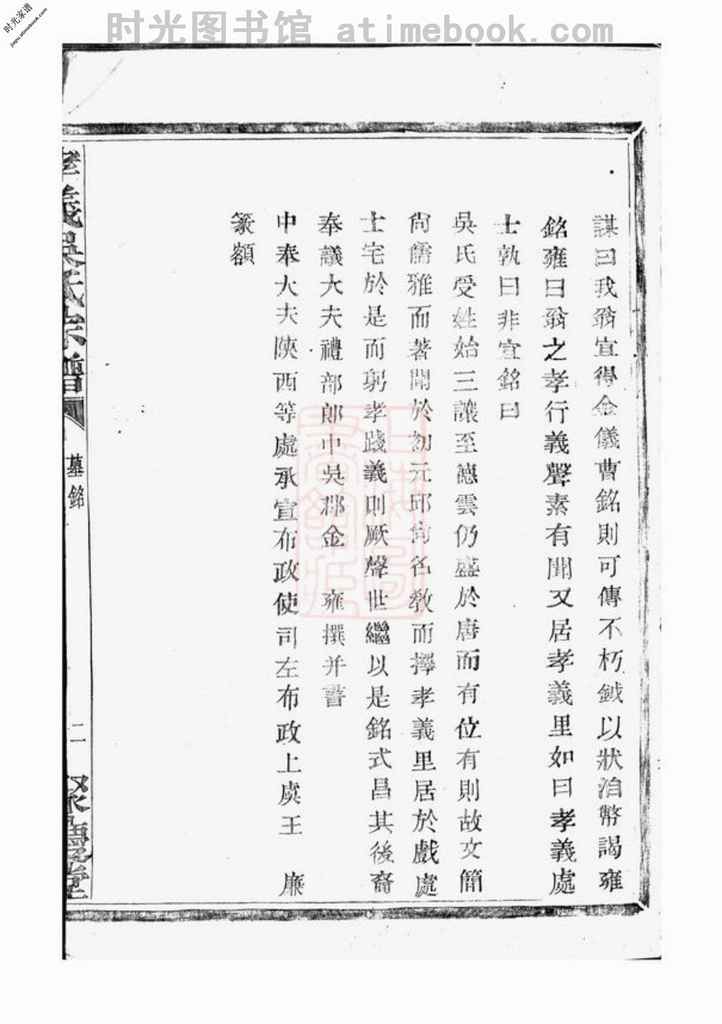 时光图书馆 atimebook.com
时光家谱
jiapu.atimebook.com
謀曰我翁宜得金儀曹銘則可傳不朽鉞以狀洎幣謁雍
銘雍曰翁之孝行義聲素有聞又居孝義里如曰孝義處
士孰曰非宜銘曰
吳氏受姓始三讓至德雲仍盛於唐而有位有則故文簡
尙儒雅而著聞於初元邱
名教而擇孝義里居於戲處
士宅於是而躬孝踐義則厥聲世繼以是銘式昌其後裔
奉議大夫禮部郞中吳郡金 雍撰并書
中奉大夫陝西等處承宣布政使司左布政上虞王 廉
篆額
孝義吳氏宗譜
墓銘
二
聚德堂